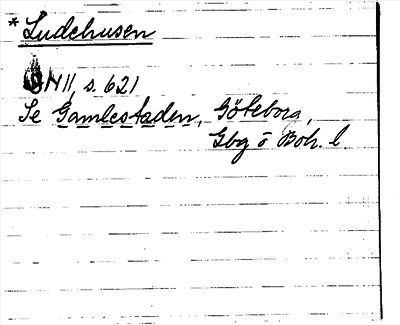 *Ludehusen
GN II, s. 621
Se Gamlestaden, Göteborg,
Gbg o Boh. l.